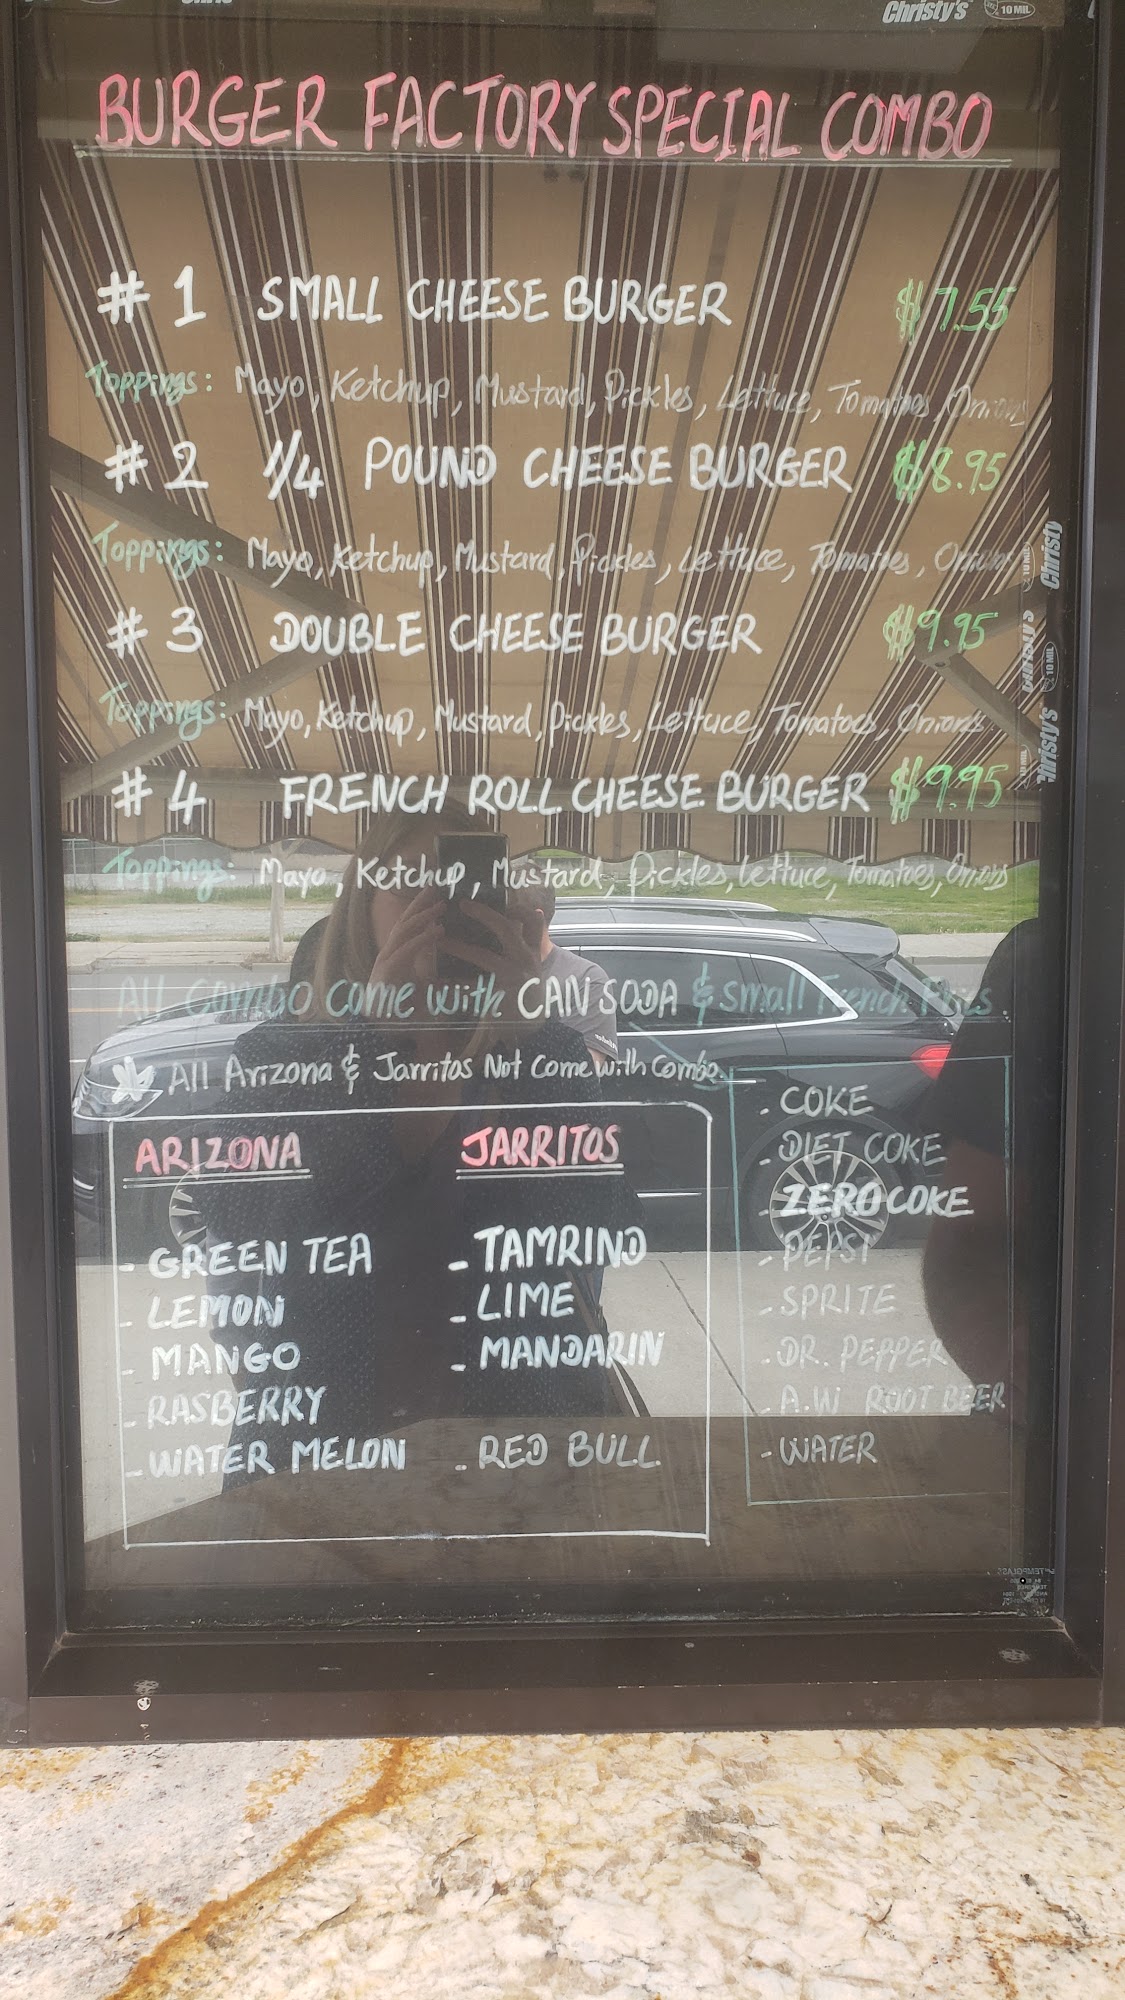 Christy's 10 MIL
BURGER FACTORY SPECIAL COMBO
# 1 SMALL CHEESE BURGER $7.55
Toppings: Mayo, Ketchup, Mustard, Pickles, Lettuce, Tomatoes, Onions
# 2 1/4 POUND CHEESE BURGER $8.95
Toppings: Mayo, Ketchup, Mustard, Pickles, Lettuce, Tomatoes, Onions
# 3 DOUBLE CHEESE BURGER $9.95
Toppings: Mayo, Ketchup, Mustard, Pickles, Lettuce, Tomatoes, Onions
# 4 FRENCH ROLL CHEESE BURGER $9.95
Toppings: Mayo, Ketchup, Mustard, Pickles, Lettuce, Tomatoes, Onions
All combo come with CAN SODA & small French Fries.
All Arizona & Jarritos Not Come with Combo.
ARIZONA
- GREEN TEA
- LEMON
- MANGO
- RASBERRY
- WATER MELON
JARRITOS
- TAMRIND
- LIME
- MANDARIN
- RED BULL
- COKE
- DIET COKE
- ZERO COKE
- PEPSI
- SPRITE
- DR. PEPPER
- A.W ROOT BEER
- WATER
Christy
10 MIL
Christy's
10 MIL
Christy's